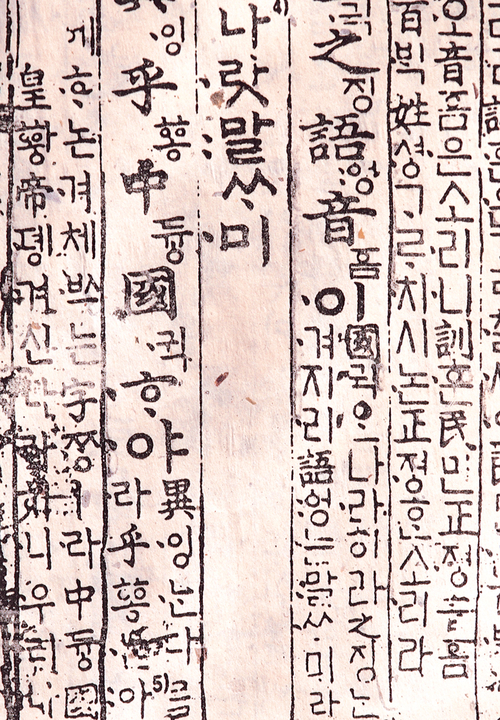 音ᅙᅳᆷ은소리니訓훈民민正져ᇰ音
百ᄇᆡᆨ姓셔ᇰᄀᆞᄅᆞ치시논正져ᇰᄒᆞᆫ소리라
귁之징語ᅌᅥᆼ音ᅙᅳᆷ이
國귁ᄋᆞᆫ나라히라之징ᄂᆞᆫ
겨지라語ᅌᅥᆼᄂᆞᆫ말ᄊᆞ미라
나랏말ᄊᆞ미
잉乎ᅘᅩᆼ中듀ᇰ國귁ᄒᆞ야
異잉ᄂᆞᆫ다ᄅᆞᆯ
라乎ᅘᅩᆼᄂᆞᆫ아5)
게ᄒᆞ논겨체ᄡᅳ는字ᄍᆞᆼㅣ라中듀ᇰ國
皇ᅘᅪᇰ帝뎽겨신나라히니우리나